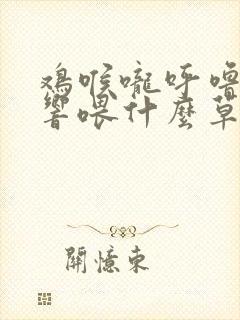 鸡喉嚨呼嚕
響喂什麼草
開憶東